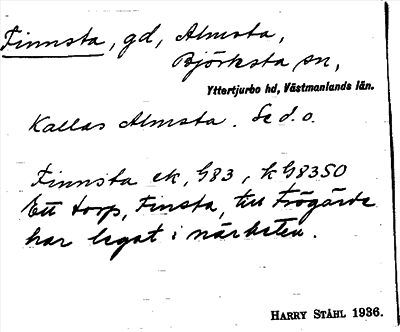 Finnsta, gd, Almsta,
Björksta sn,
Yttertjurbo hd, Västmanlands län.
Kallas Almsta. Se d.o.
Finnsta ek, G83, k G8350
Ett torp, Finsta, till Frögärde
har legat i närheten.
HARRY STÅHL 1936.